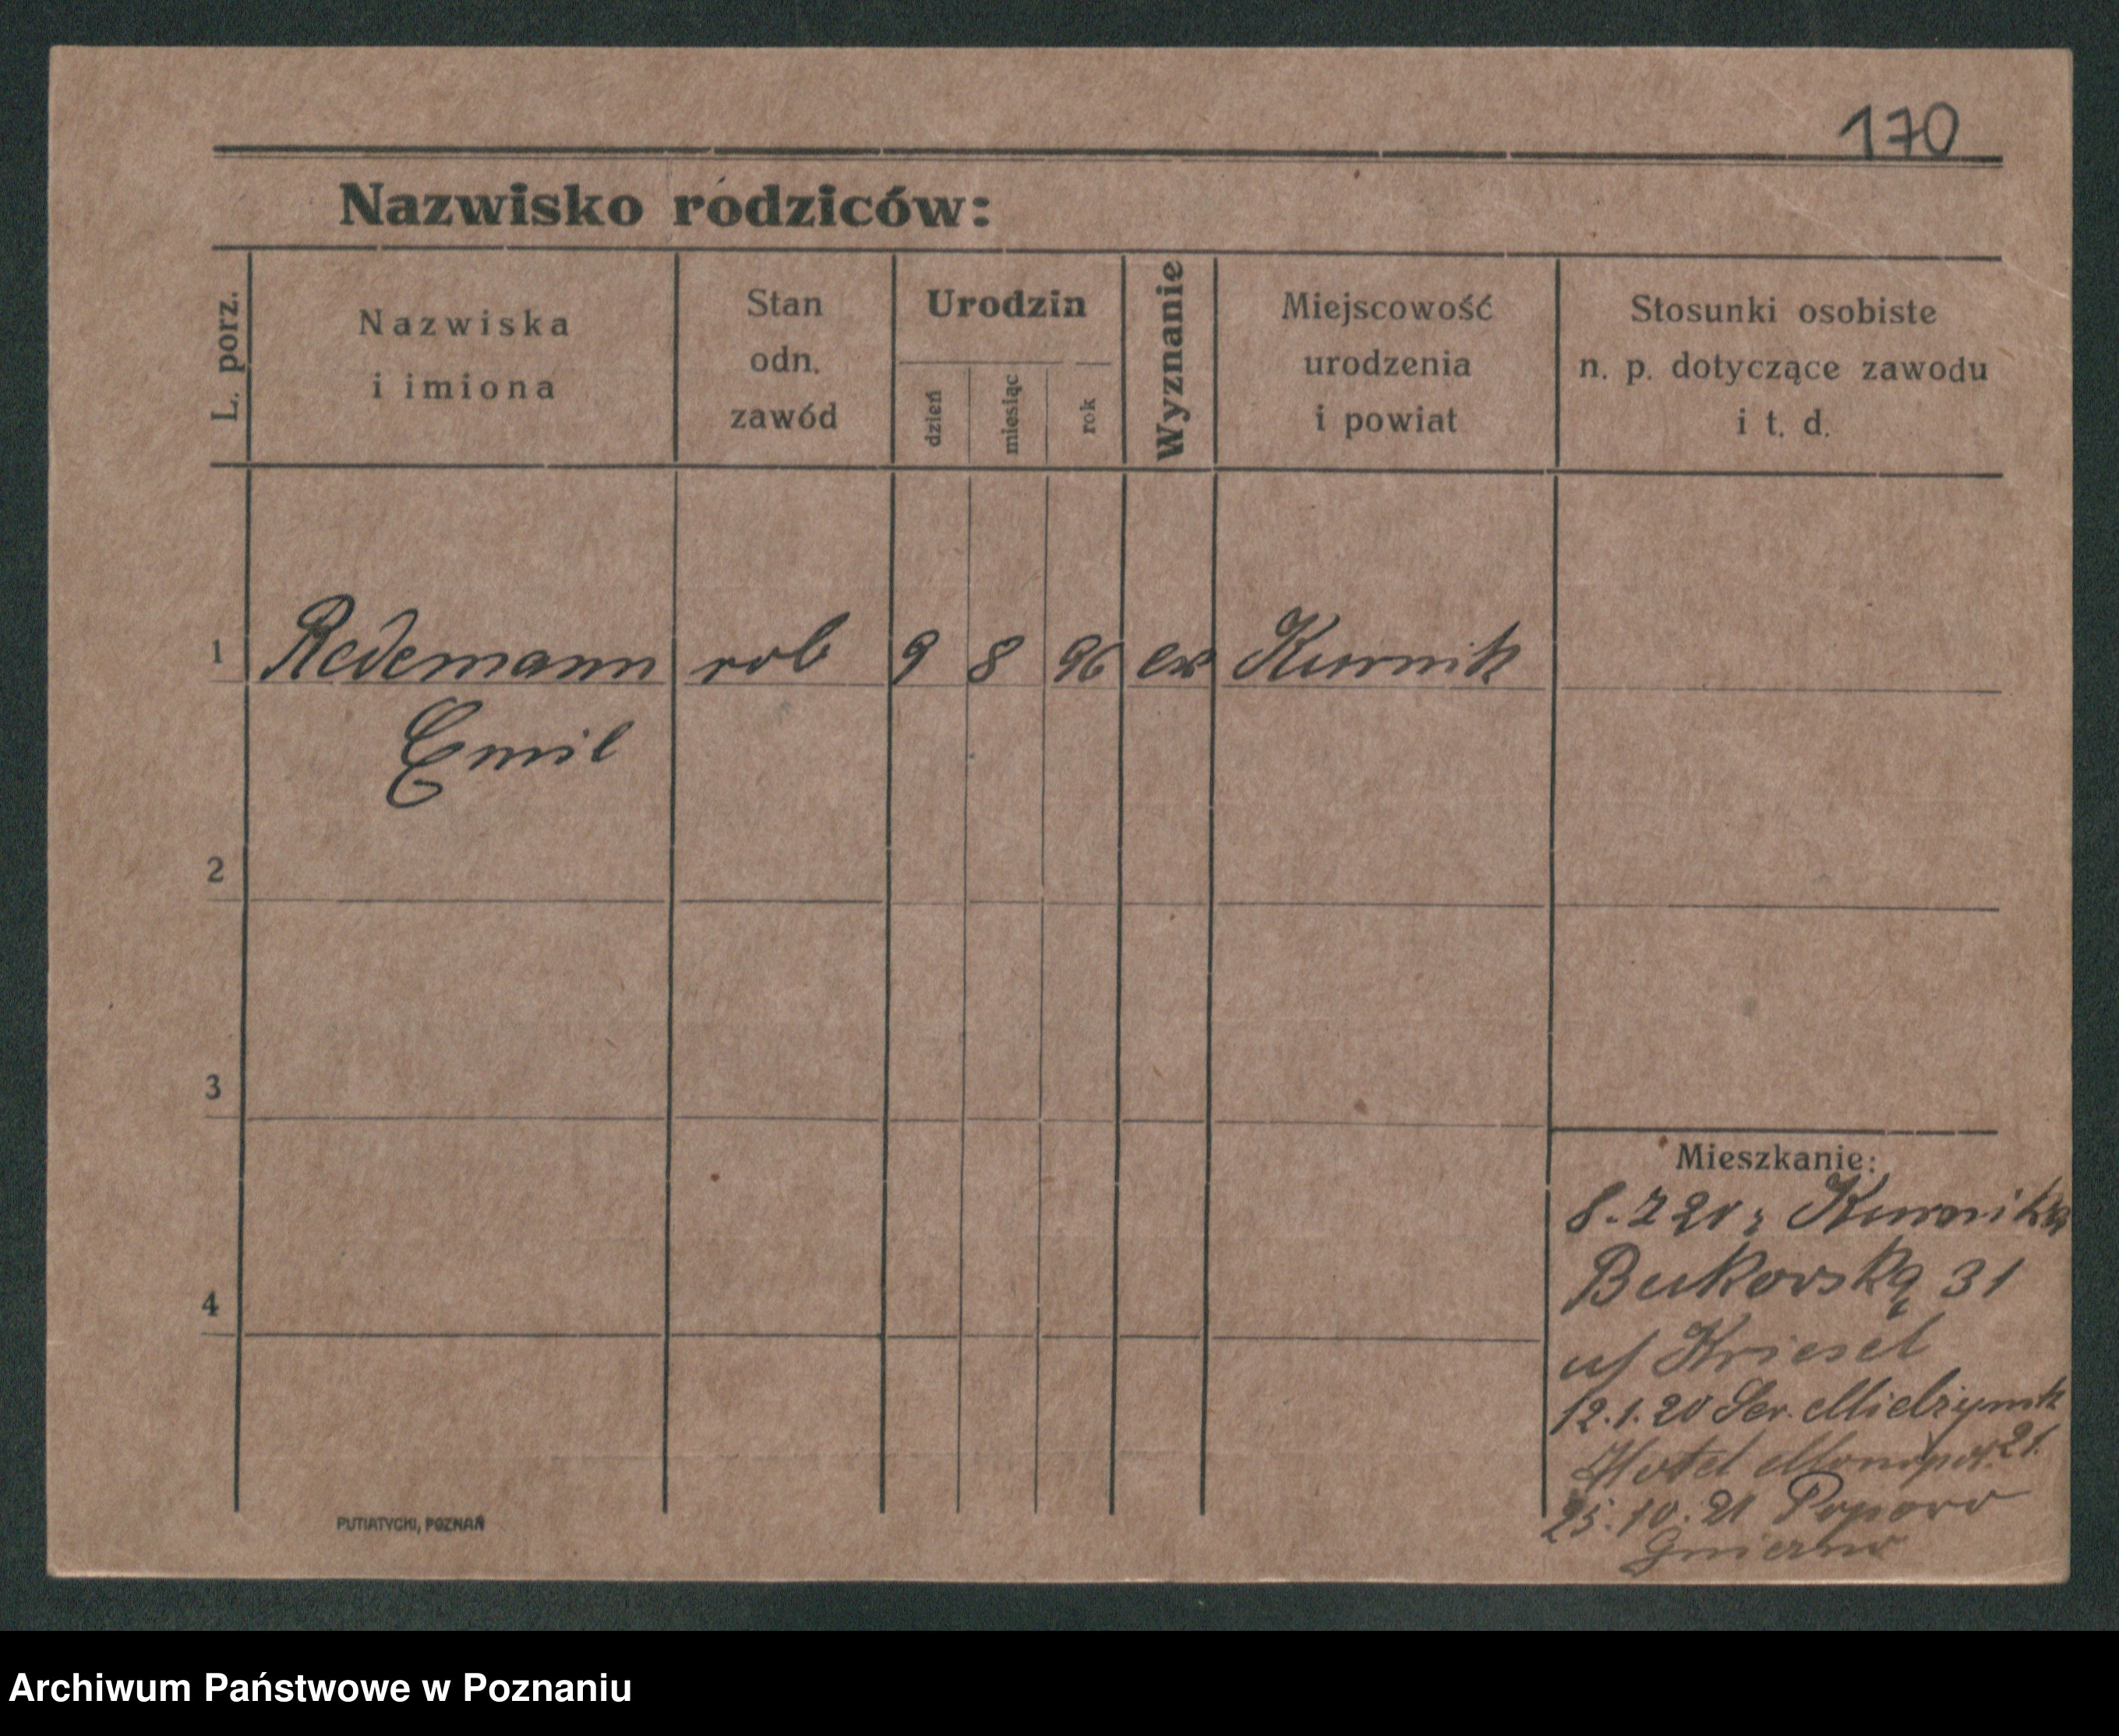 170
Nazwisko rodziców:
L. porz.
Nazwiska
i imiona
Stan
odn.
zawód
Urodzin
dzień
miesiąc
rok
Wyznanie
Miejscowość
urodzenia
i powiat
Stosunki osobiste
n. p. dotyczące zawodu
i t. d.
1 Redemann rob 9 8 96 ew Kurnik
Emil
2
3
4
Mieszkanie:
8.7 20 z Kurnika
Bukovską 31
u/ Kriesel
12.1.20 Ser. Mielżynsk
Hotel 21.
25.10.21 Popowo
Gniezno
PUTIATYCKI, POZNAŃ
Archiwum Państwowe w Poznaniu